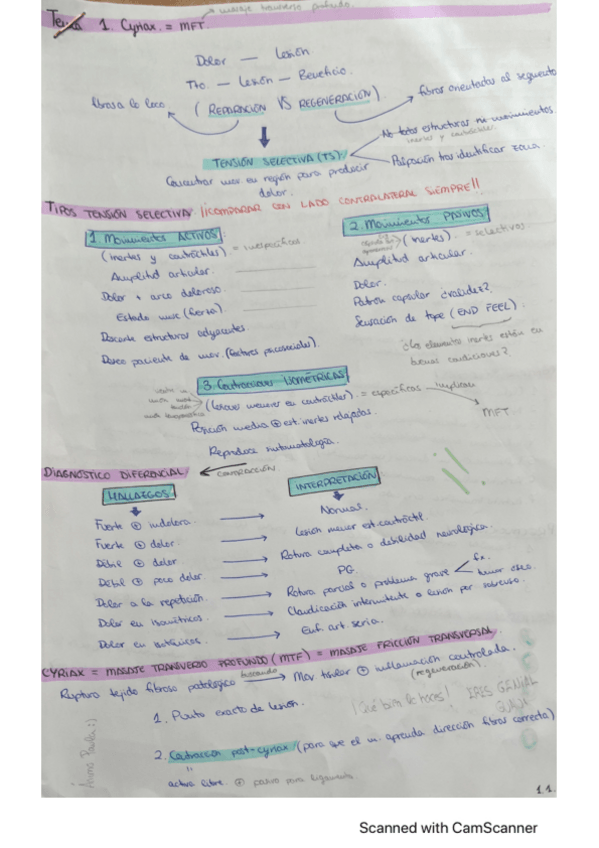 masaje transverso profundo.
Tema 1. Cyriax. = MFT.
Dolor — Lesión.
Tto — Lesión — Beneficio.
fibras a lo loco
(REPARACIÓN VS REGENERACIÓN)
fibras orientadas al segmento
TENSIÓN SELECTIVA (TS)
No todas estructuras ni movimientos.
inertes y contráctiles.
Palpación tras identificar zona.
Concentrar mov. en región para producir
dolor.
TIPOS TENSIÓN SELECTIVA ¡¡COMPARAR CON LADO CONTRALATERAL SIEMPRE!!
1. Movimientos ACTIVOS
(inertes y contráctiles) = inespecíficos.
Amplitud articular.
Dolor + arco doloroso.
Estado musc (fuerza).
Descarte estructuras adyacentes.
Deseo paciente de mov. (factores psicosociales).
2. Movimientos PASIVOS
(inertes). = selectivos
Amplitud articular.
Dolor.
Patrón capsular ¿validez?
Sensación de tope (END FEEL):
¿Los elementos inertes están en
buenas condiciones?
3. Contracciones ISOMÉTRICAS
(lesiones menores en contráctiles). = específicas implican
MFT
Posición media ⊕ est. inertes relajadas.
Reproduce sintomatología.
DIAGNÓSTICO DIFERENCIAL
CONTRACCIÓN
HALLAZGOS.
INTERPRETACIÓN
Fuerte ⊕ indolora.
Normal.
Fuerte ⊕ dolor.
Lesión menor est. contráctil.
Débil ⊕ dolor
Rotura completa o debilidad neurológica.
Débil ⊕ poco dolor.
PG.
Dolor a la repetición.
Rotura parcial o problema grave
fx.
tumor óseo.
Dolor en isométricos.
Claudicación intermitente o lesión por sobreuso.
Dolor en isotónicos.
Enf. art. seria.
CYRIAX = MASAJE TRANSVERSO PROFUNDO (MTP) = MASAJE FRICCIÓN TRANSVERSAL
Ruptura tejido fibroso patológico
buscando
Mov. tisular ⊕ inflamación controlada.
(regeneración).
1. Punto exacto de lesión.
¡Qué bien lo haces! ERES GENIAL
2. Contracción post-cyriax (para que el m. aprenda dirección fibras correcta)
activa libre. ⊕ pasivo para ligamento.
Ánimo Paula :)
1.1.
Scanned with CamScanner